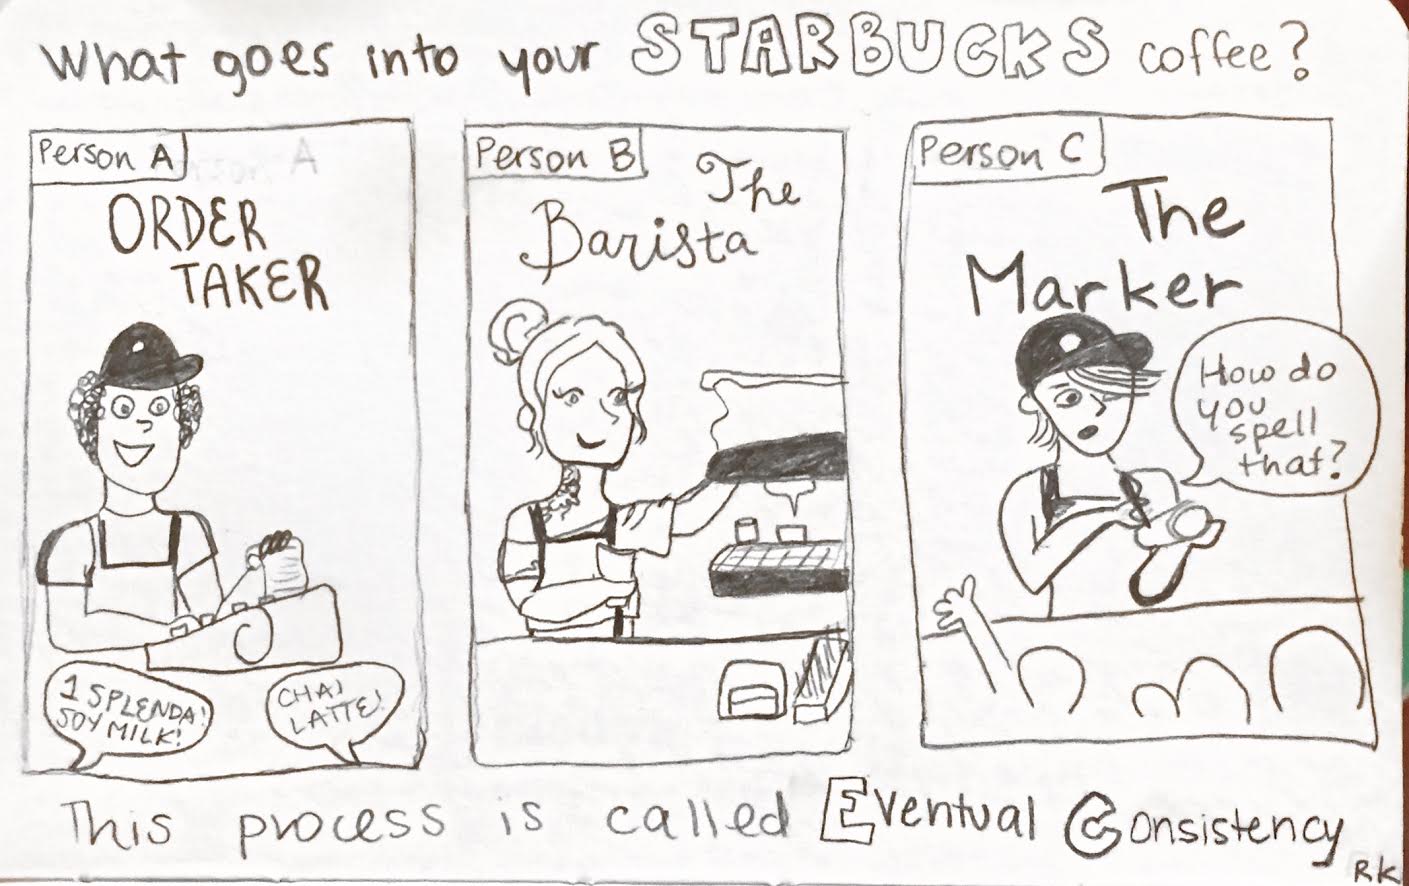 What goes into your STARBUCKS coffee?
Person A
ORDER
TAKER
1 SPLENDA!
SOY MILK!
CHAI
LATTE!
Person B
The
Barista
Person C
The
Marker
How do
you
spell
that?
This process is called Eventual Consistency
RK